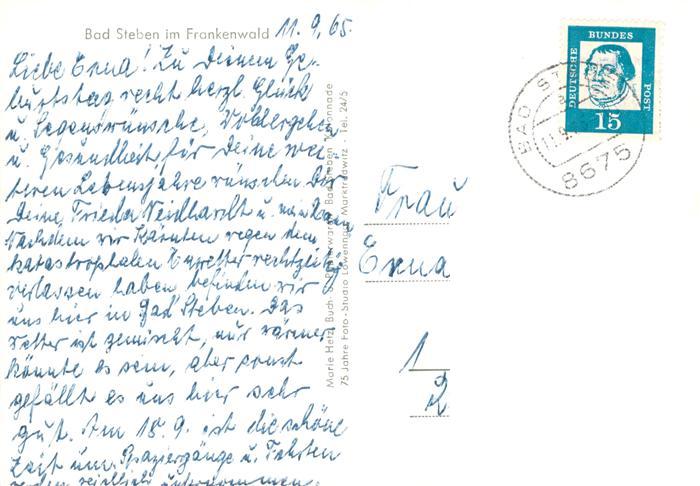 Bad Steben im Frankenwald 11.9.65.
Liebe Erna! Zu Deinem Ge-
burtstag recht herzl. Glück
u. Segenswünsche, Wohlergehen
u. Gesundheit für Deine wei-
teren Lebensjahre wünschen Dir
Deine Frieda Neidhardt u. mein Mann
Nachdem wir Kärnten wegen dem
katastrophalen Unwetter rechtzeitig
verlassen haben befinden wir
uns hier in Bad Steben. Das
Wetter ist gemischt, nur wärmer
könnte es sein, aber sonst
gefällt es uns hier sehr
gut. Am 15.9. ist die schöne
Zeit um. Spaziergänge u. Fahrten
reichlich unternommen.
Marie Hetz, Buch- Bad Steben Kolonnade
75 Jahre Foto-Studio Löwenring Marktredwitz · Tel. 24/5
DEUTSCHE BUNDES POST
15
BAD ST
11.9.
8675
Frau
Erna
1